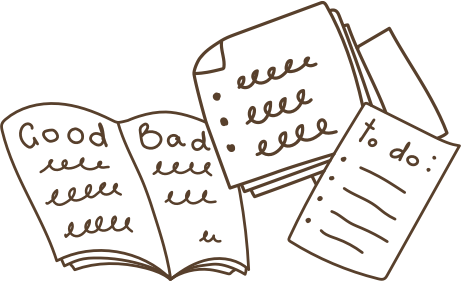 Good
Bad
to do: